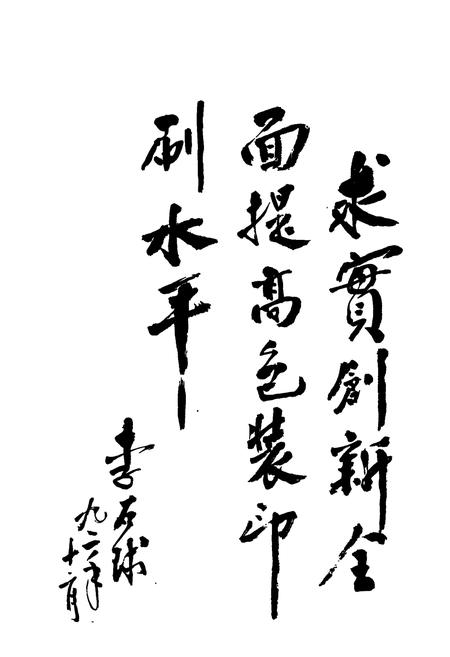 求實創新全
面提高包裝印
刷水平
李石球
九二年
十二月